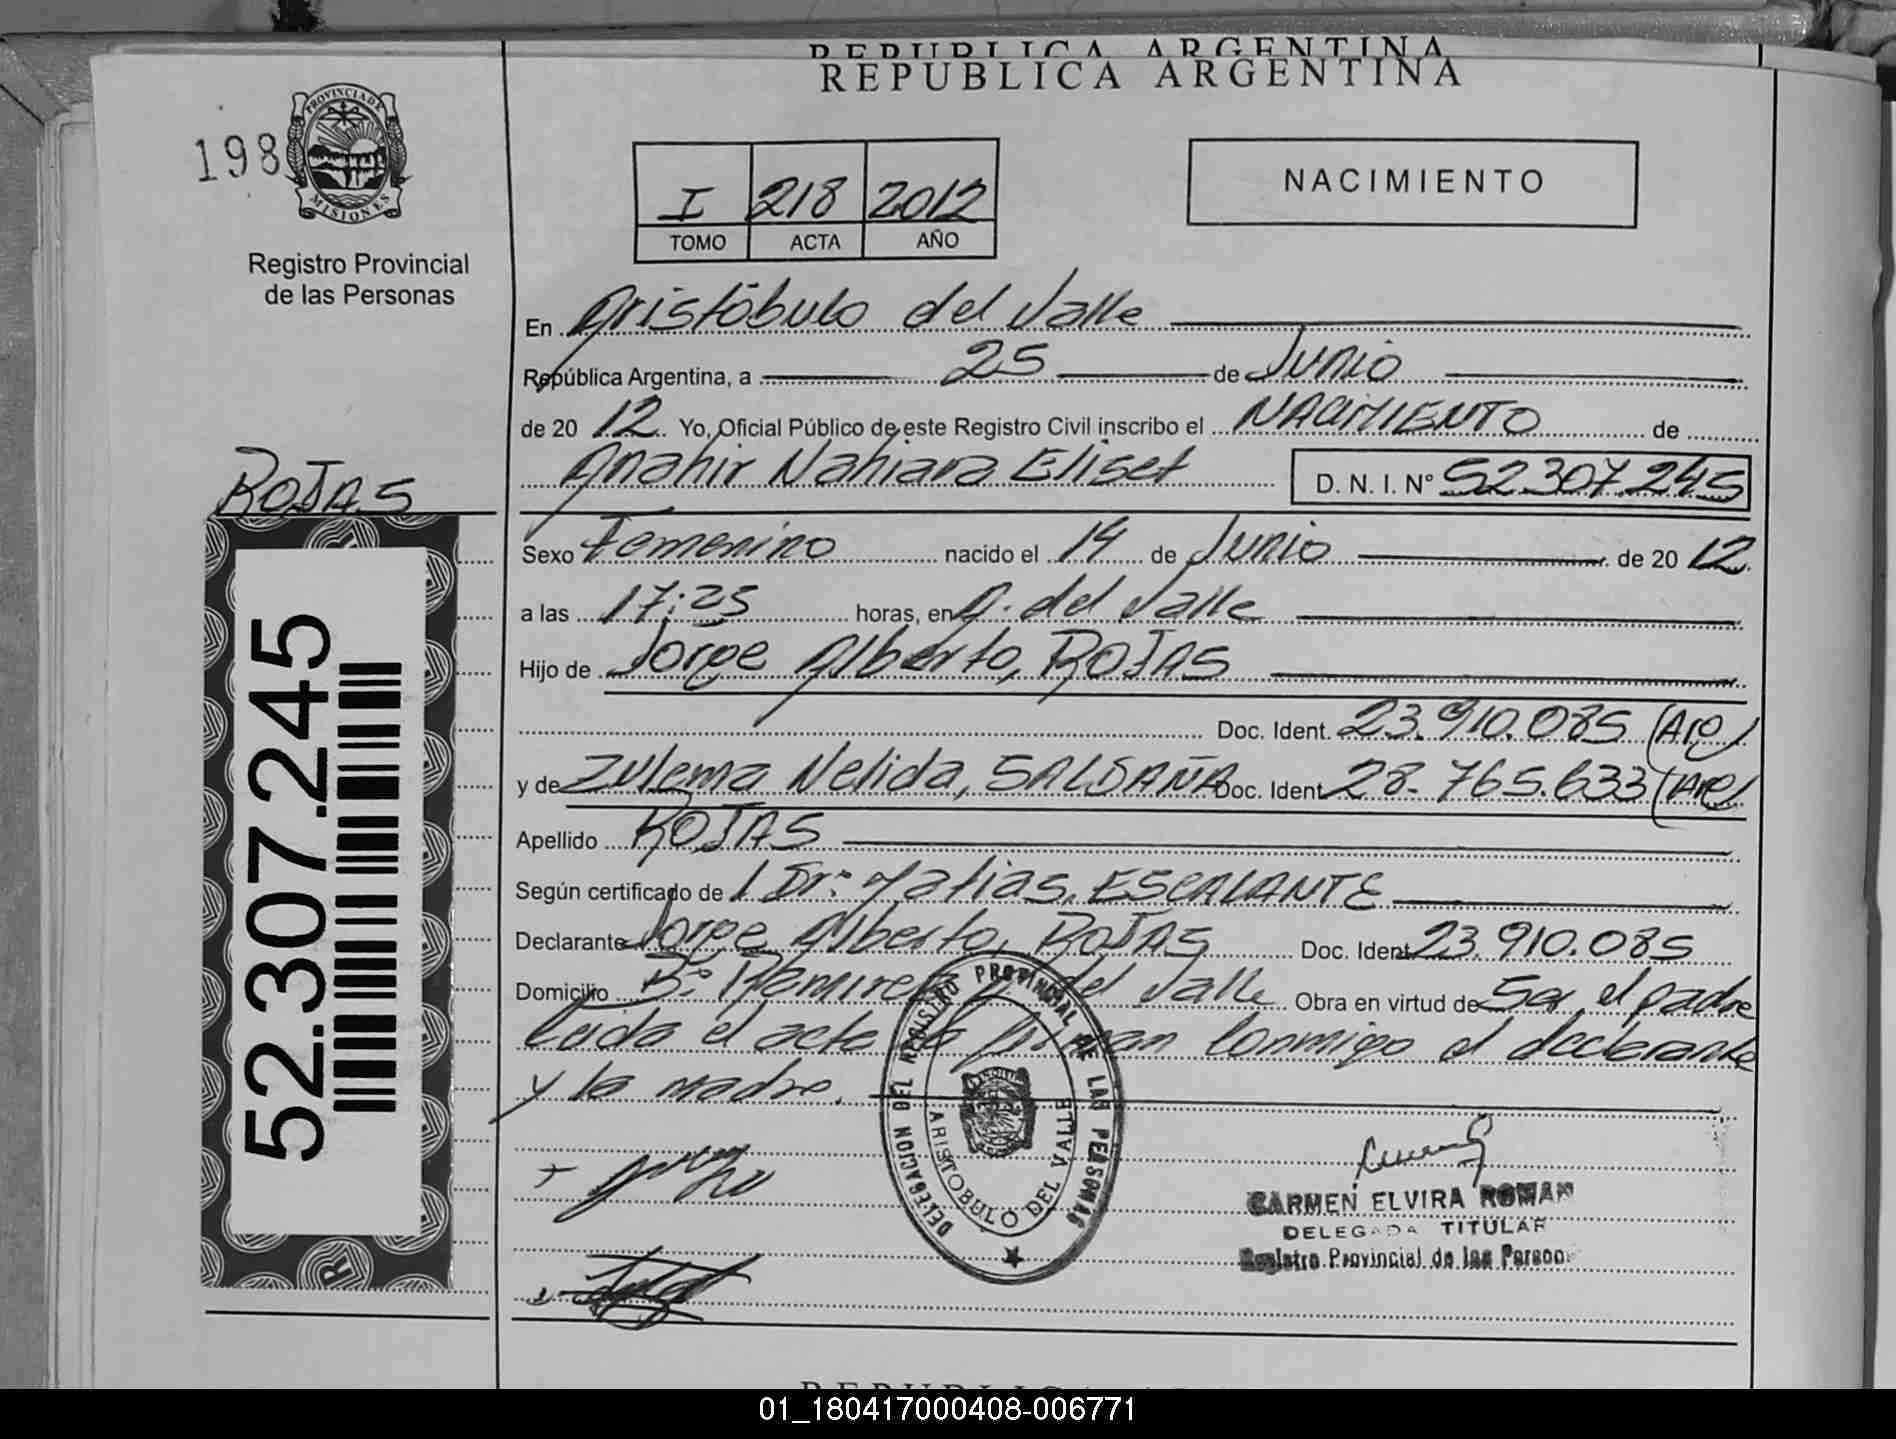 REPUBLICA ARGENTINA
REPUBLICA ARGENTINA
198
PROVINCIA DE MISIONES
Registro Provincial
de las Personas
I 218 2012
TOMO ACTA AÑO
NACIMIENTO
En Aristóbulo del Valle
República Argentina, a 25 de Junio
de 20 12 Yo, Oficial Público de este Registro Civil inscribo el NACIMIENTO de
Anahir Nahiara Eliset D. N. I. N° 52.307.245
ROJAS
52.307.245
Sexo Femenino nacido el 14 de Junio de 20 12
a las 17:25 horas, en A. del Valle
Hijo de Jorge Alberto, ROJAS
Doc. Ident. 23.910.085 (Arg)
y de Zulema Nelida, SALDAÑA Doc. Ident. 28.765.633 (Arg)
Apellido ROJAS
Según certificado de Dr: Matias, ESCALANTE
Declarante Jorge Alberto, ROJAS Doc. Ident. 23.910.085
Domicilio B° Ramirez A. del Valle Obra en virtud de Ser el padre
Leida el acta la firman conmigo el declarante
y la madre.
DELEGACION DEL REGISTRO PROVINCIAL DE LAS PERSONAS
ARISTOBULO DEL VALLE
CARMEN ELVIRA ROMAN
DELEGADA TITULAR
Registro Provincial de las Person
REPUBLICA
01_180417000408-006771